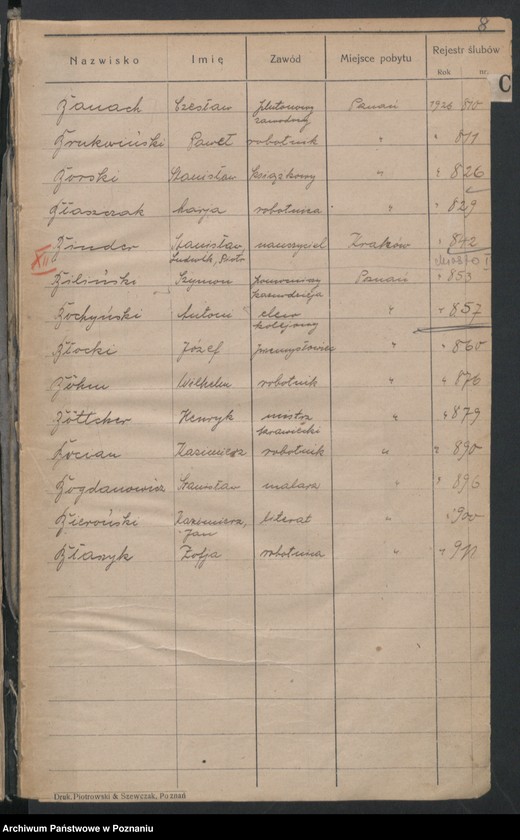 8
Nazwisko Imię Zawód Miejsce pobytu Rejestr ślubów
Rok nr.
C
Banach Czesław plutonowy Poznań 1926 810
zawodowy
Brukwiński Paweł robotnik " " 811
Borski Stanisław książkowy " " 826
Błaszczak Marja robotnica " " 829
Binder Stanisław, nauczyciel Kraków " 842
XII Ludwik, Piotr
Biliński Szymon pomocniczy Poznań " 853
Bochyński Antoni " " 857
kolejowy
Błocki Józef przemysłowiec " " 860
Böhm Wilhelm robotnik " " 876
Böttcher Henryk mistrz " " 879
krawiecki
Bocian Kazimierz robotnik " " 890
Bogdanowicz Stanisław malarz " " 896
Bieroński Kazimierz, literat " " 900
Jan
Błaszyk Zofja robotnica " " 912
Druk. Piotrowski & Szewczak, Poznań
Archiwum Państwowe w Poznaniu